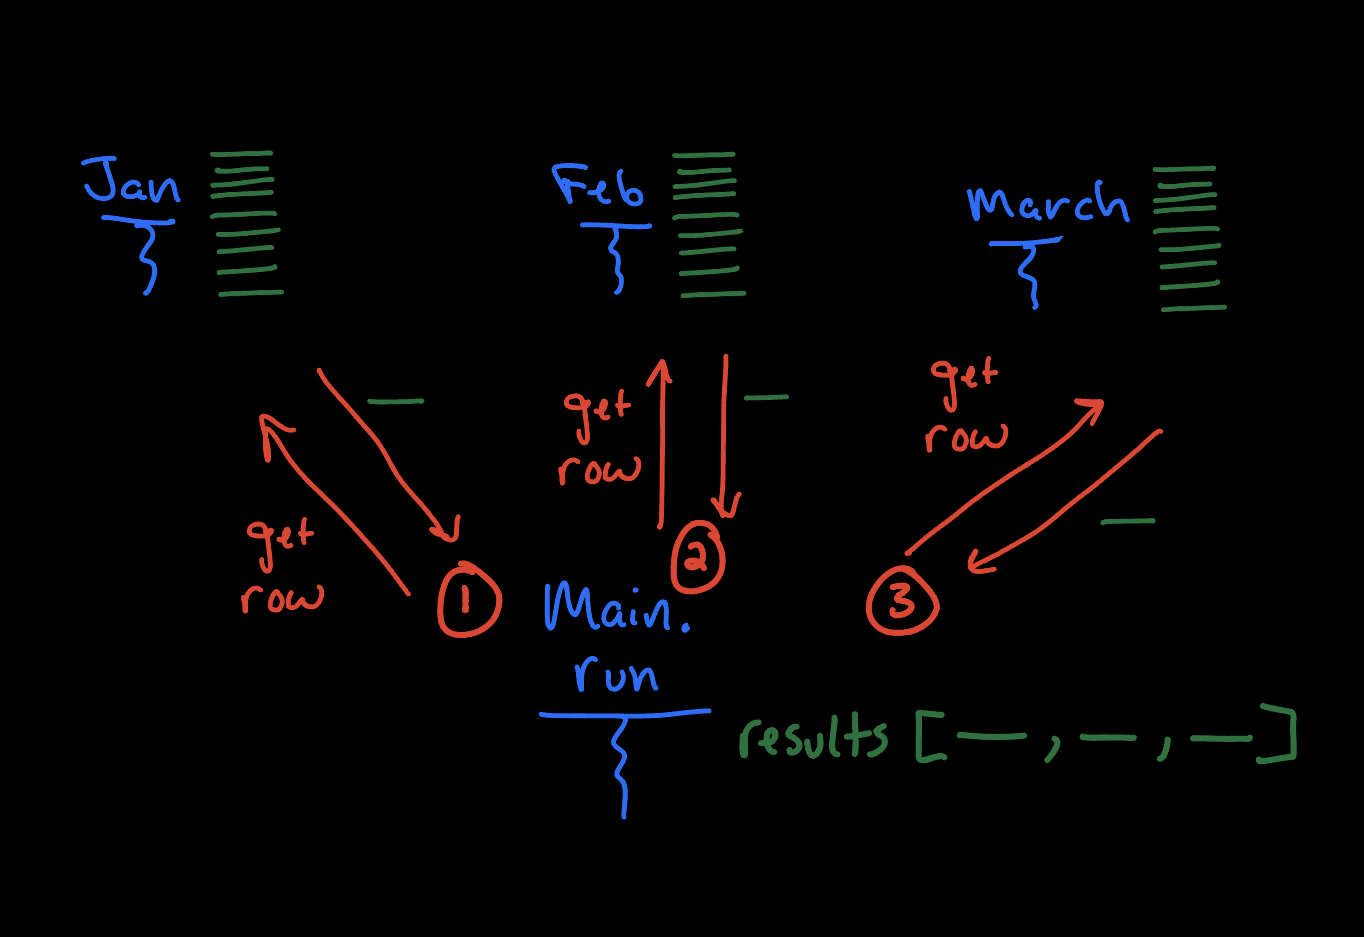 Jan
Feb
March
get
row
get
row
get
row
1
2
3
Main.
run
results [—, —, —]